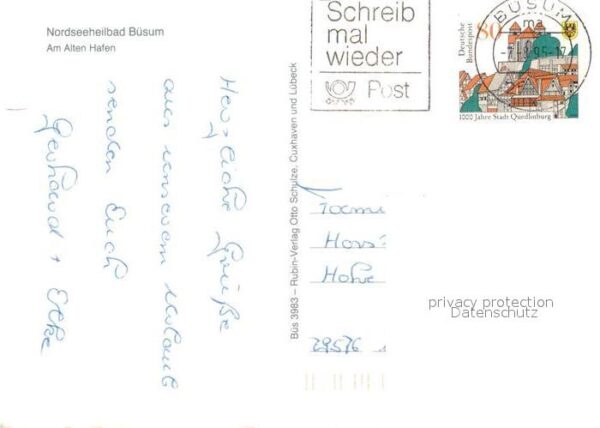 Nordseeheilbad Büsum
Am Alten Hafen
Schreib
mal
wieder
Post
BÜSUM
ma
Deutsche
Bundespost
80
1000 Jahre Stadt Quedlinburg
Herzliche Grüße
aus unserem Urlaub
senden Euch
Gerhard + Elke
Büs 3983 – Rubin-Verlag Otto Schulze, Cuxhaven und Lübeck
Hors
Hohe
29576
privacy protection
Datenschutz